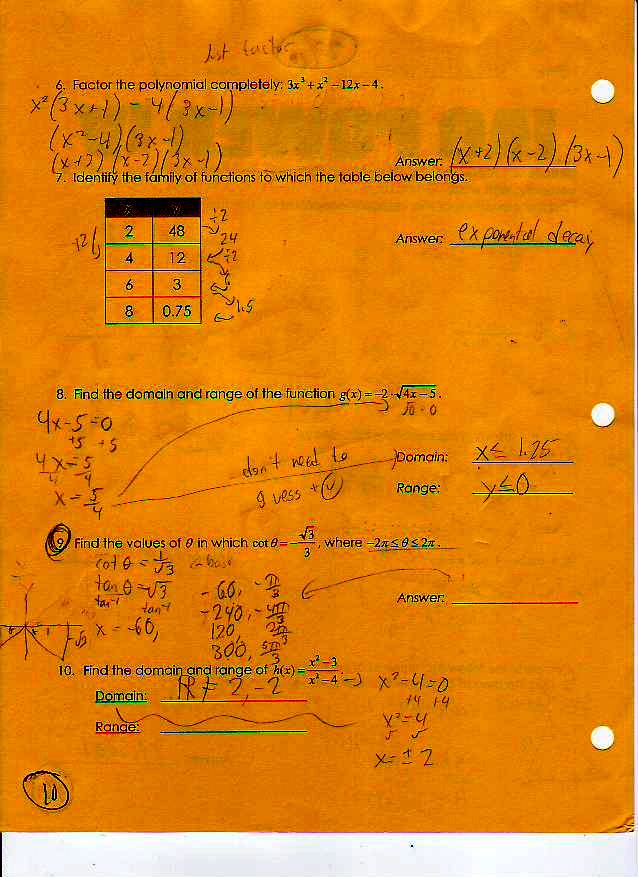 6. Factor the polynomial completely: 3x³ + x² − 12x − 4.
x²(3x+1) − 4(3x−1)
(x²−4)(3x−1)
(x+2)(x−2)(3x−1)
Answer: (x+2)(x−2)(3x−1)
7. Identify the family of functions to which the table below belongs.
2 48
4 12
6 3
8 0.75
÷2
24
÷2
1.5
Answer: exponential decay
8. Find the domain and range of the function g(x) = −2·√4x−5.
√0 = 0
4x−5=0
+5 +5
4x=5
4 4
x = 5/4
don't need to
guess + ✓
Domain: x≤ 1.25
Range: y≤0
9. Find the values of θ in which cot θ = −√3/3, where −2π ≤ θ ≤ 2π.
cot θ = 1/√3
tan θ = √3
tan⁻¹ tan⁻¹
x = −60,
−60, −π/3
−240, −4π/3
120, 2π/3
300, 5π/3
Answer:
10. Find the domain and range of h(x) = x²−3/x²−4
Domain: ℝ ≠ 2, −2
Range:
x²−4=0
+4 +4
x²=4
x= ± 2
10